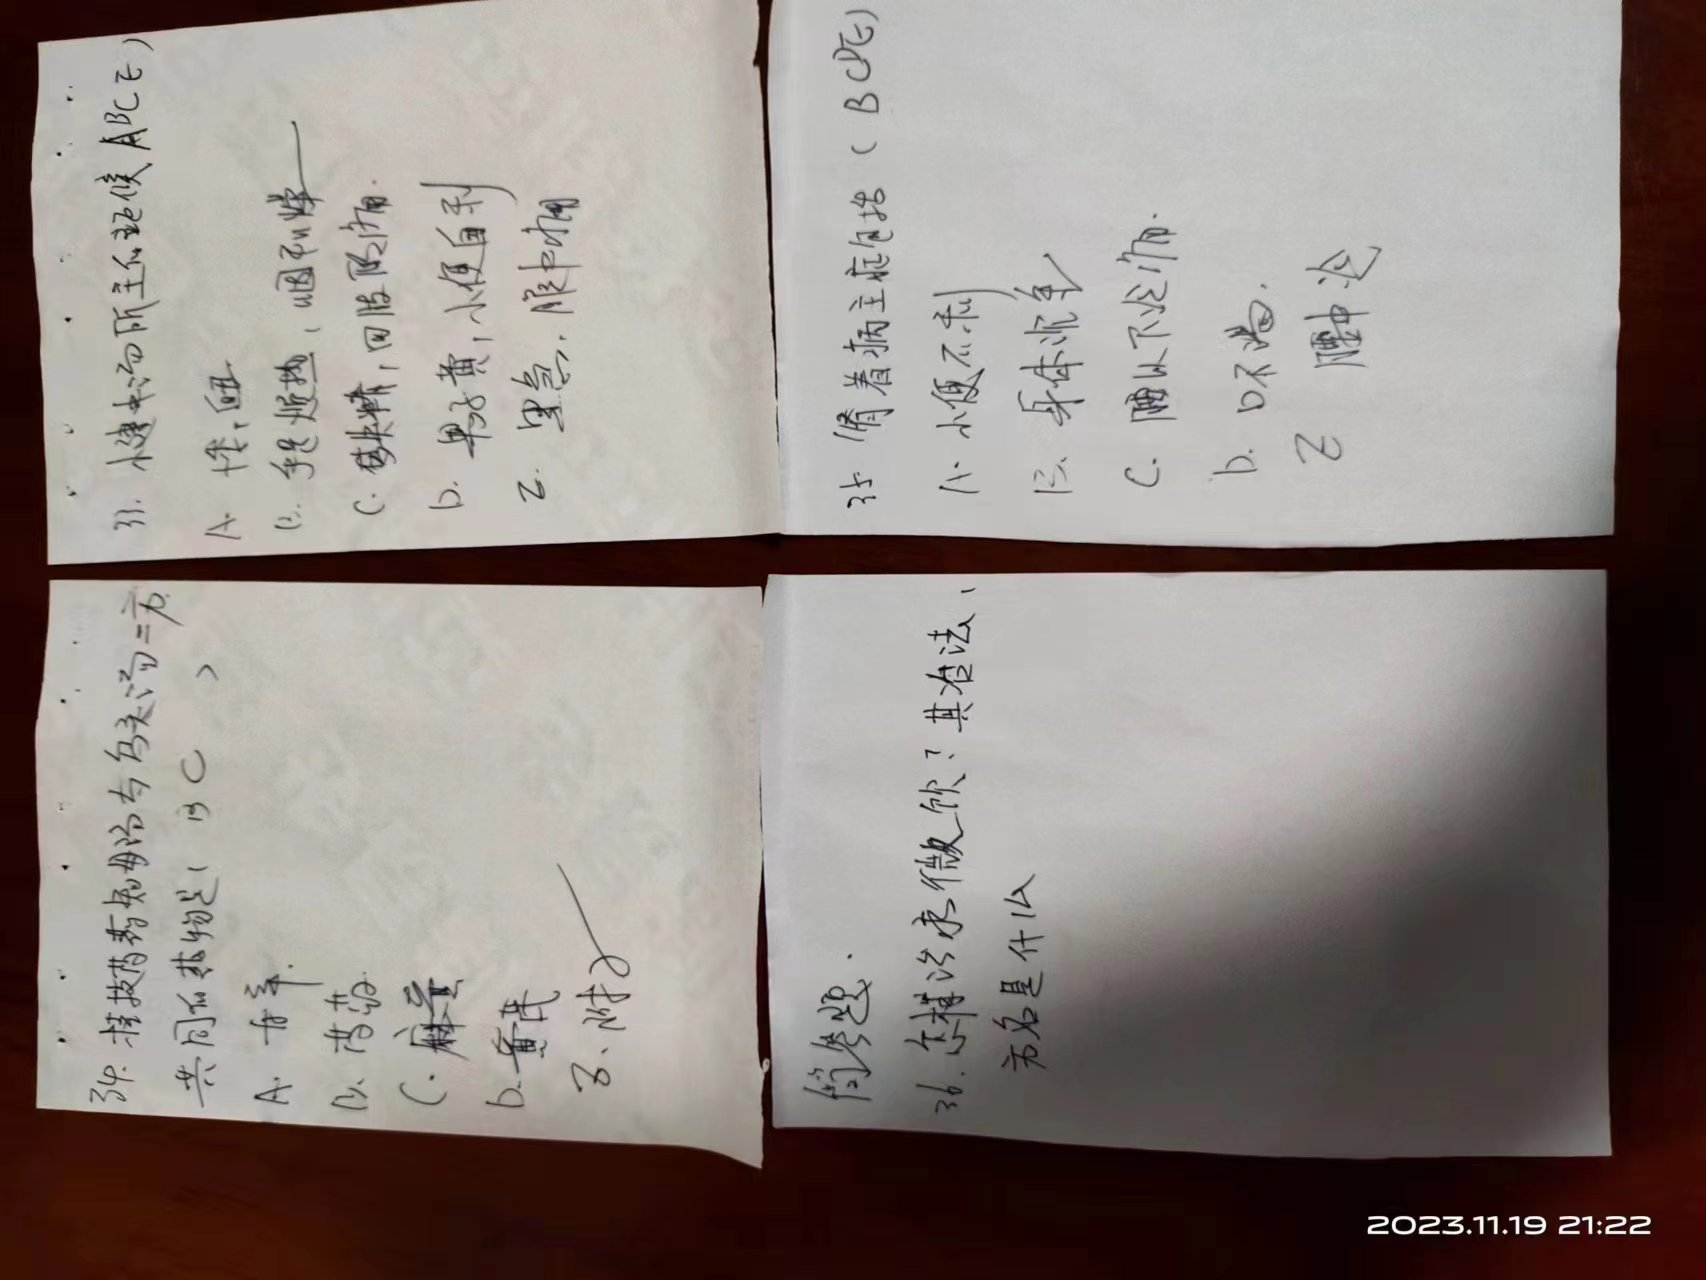 34. 桂枝芍药知母汤与乌头汤二方
共同的药物是( BC )
A. 甘草.
B. 芍药.
C. 麻黄
D. 黄芪
E. 附子
33. 小建中汤所主的证候 ABCE)
A. 悸,衄
B. 手足烦热,咽干口燥
C. 梦失精,四肢酸痛.
D. 男子黄,小便自利
E. 里急.腹中痛
简答题.
36. 怎样治疗微饮?其治法,
方名是什么
35 肾着病主症包括( BCDE)
A. 小便不利
B. 身体沉重
C. 腰以下冷痛.
D. 口不渴.
E 腰中冷
2023.11.19 21:22